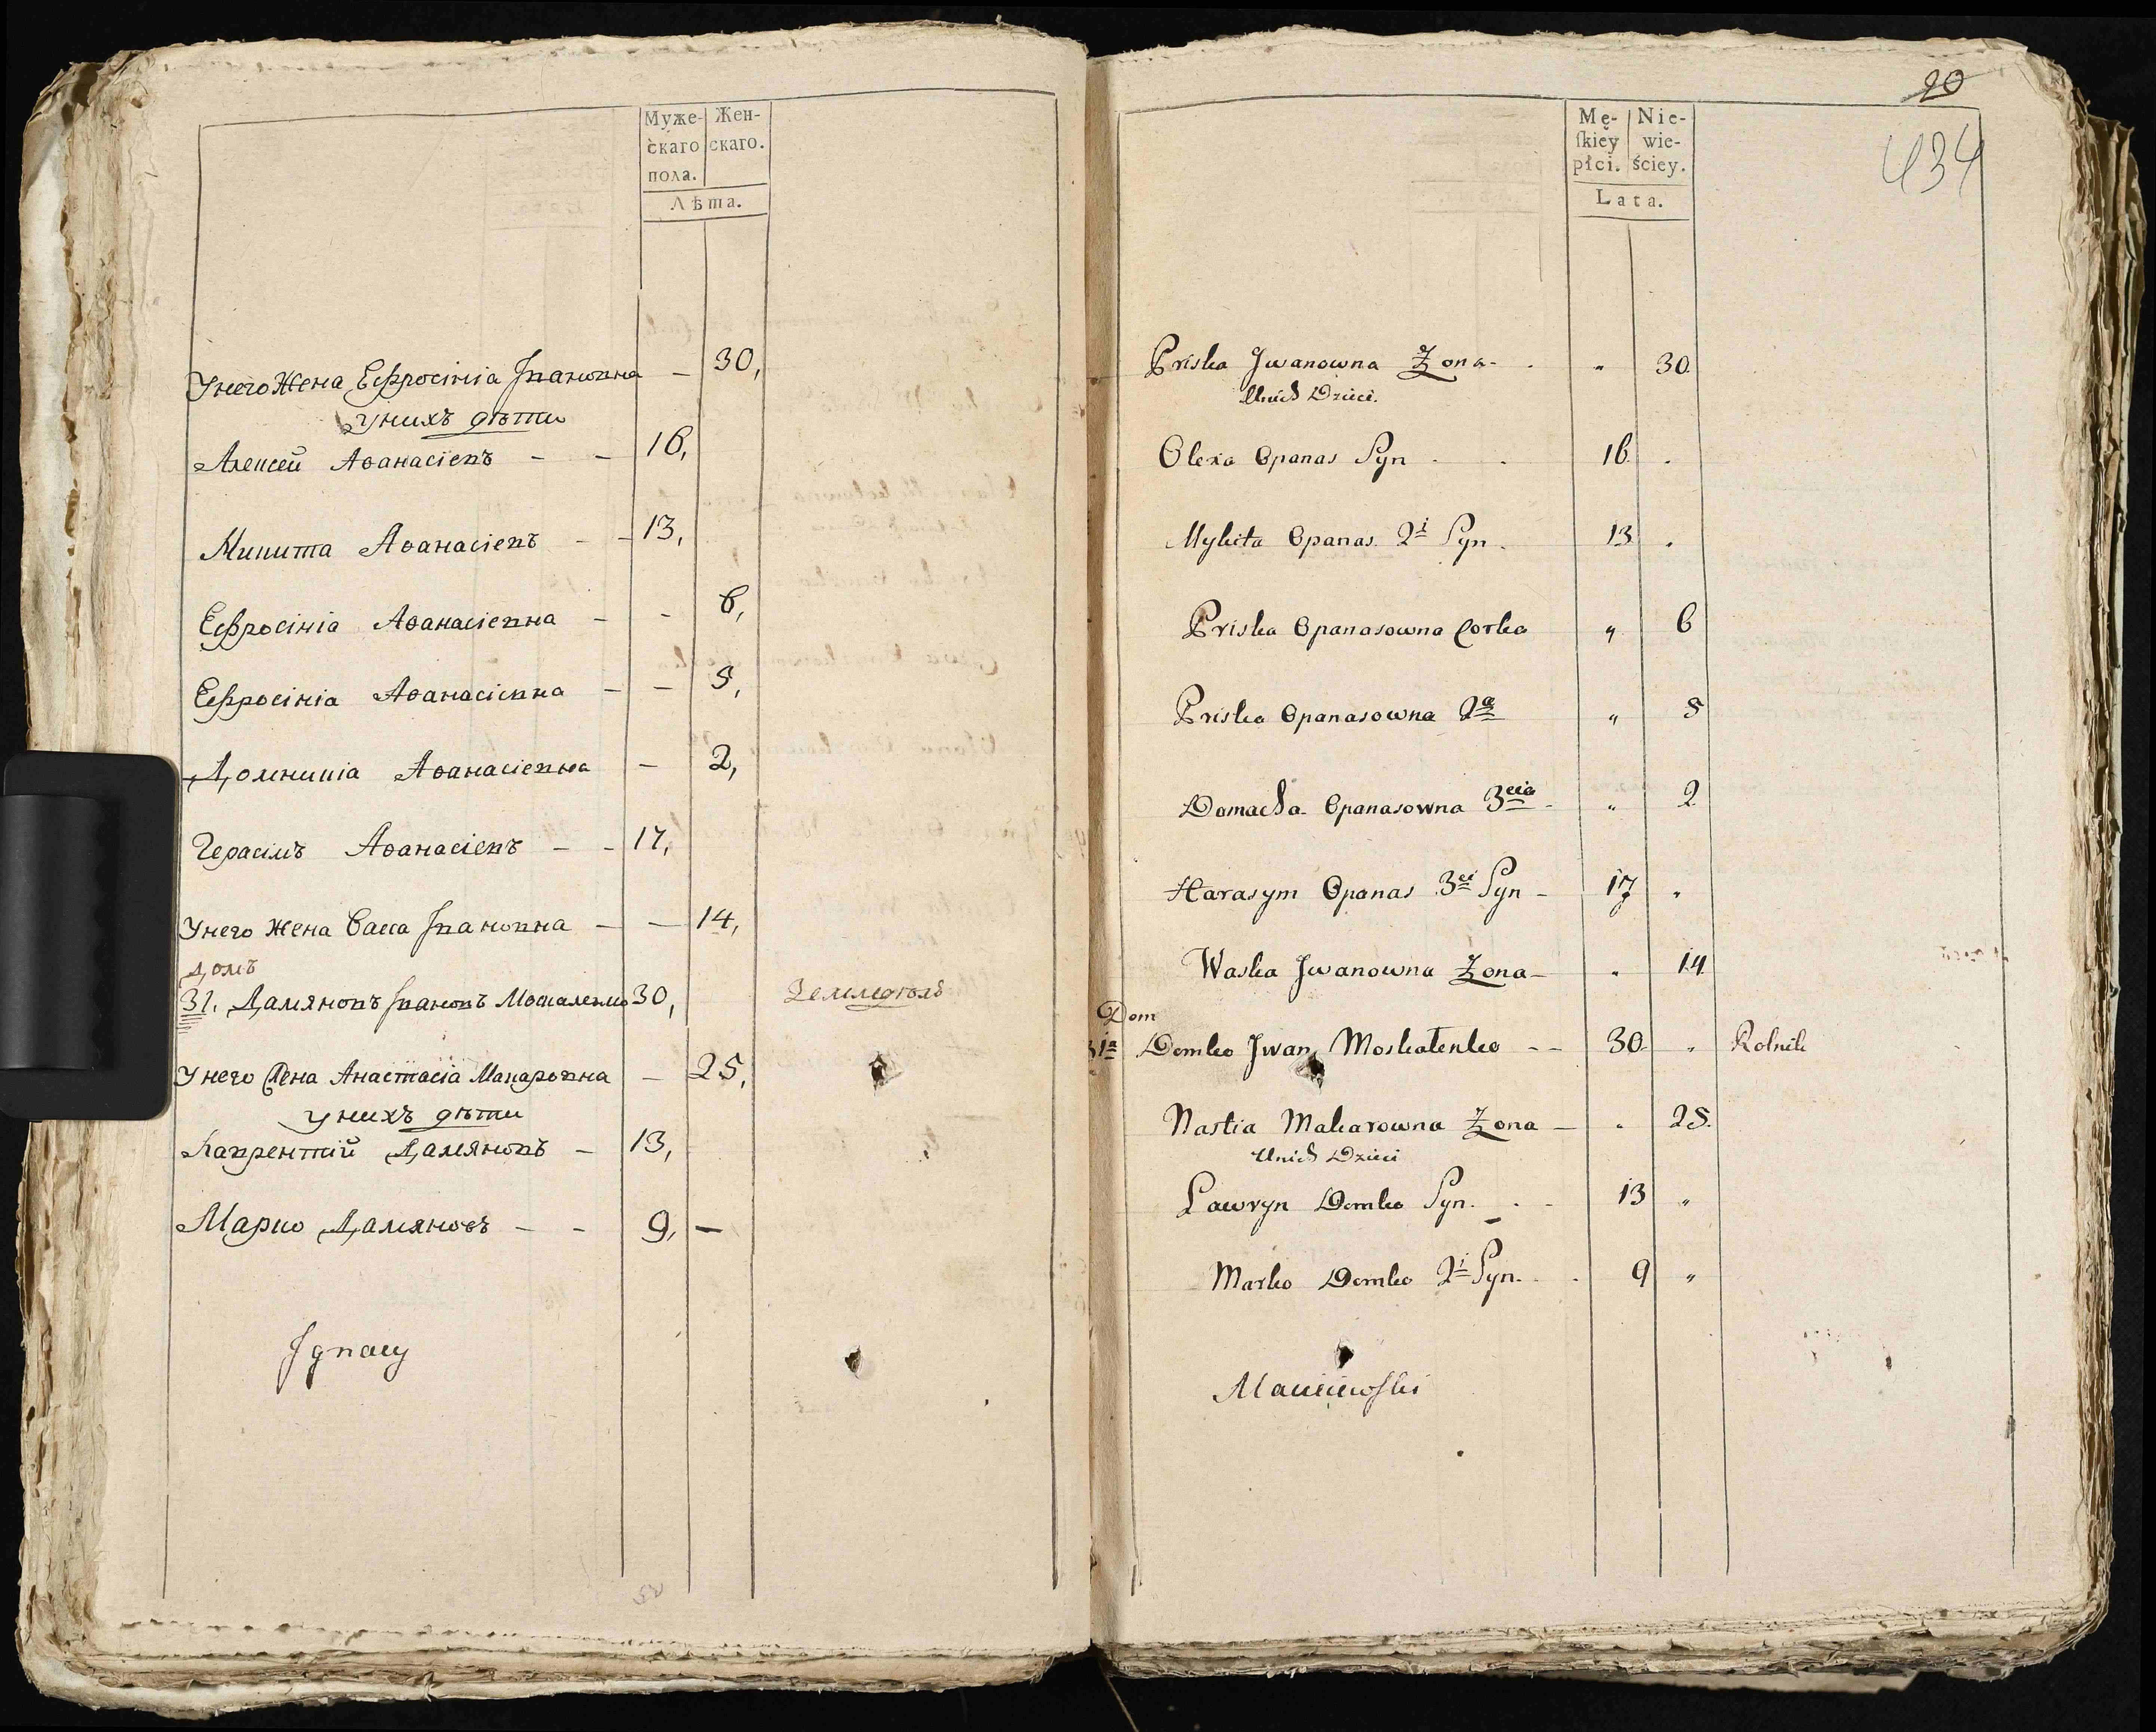 Муже- Жен-
скаго скаго.
пола.
Лѣта.
У него Жена Ефросинія Іванопна — 30,
У нихъ дѣти
Алексей Аѳанасіевъ — — 16,
Микита Аѳанасіевъ — — 13,
Ефросинія Аѳанасіевна — — 6,
Ефросинія Аѳанасіевна — — 5,
Домникія Аѳанасіевна — 2,
Герасімъ Аѳанасіевъ — — 17,
У него жена Васса Івановна — — 14,
Домъ
31. Дамяновъ Івановъ Москаленко 30, Земледѣлъ
У него Жена Анастасіа Макаровна — 25,
У нихъ дѣти
Лаврентій Дамяновъ — 13,
Марко Дамяновъ — — 9, —
Ignacy
20
434
Mę- Nie-
ſkiéy wie-
płci. ściey.
Lata.
Priska Jwanowna Żona - . " 30.
Unich Dzieci.
Olexa Opanas Syn . . 16. .
Mykita Opanas. 2i Syn . 13 .
Priska Opanasowna Corka " 6
Priska Opanasowna 2a " 5
Domacha Opanasowna 3cia - " 2
Harasym Opanas 3ci Syn - 17 "
Waska Jwanowna Żona - " 14
Dom
31a Demko Jwan Moskałenko - - 30. " Rolnik
Nastia Makarowna Żona - " 25.
Unich Dzieci
Lawryn Demko Syn. . - 13 "
Marko Demko 2i Syn. . . 9 "
Maciiewſki